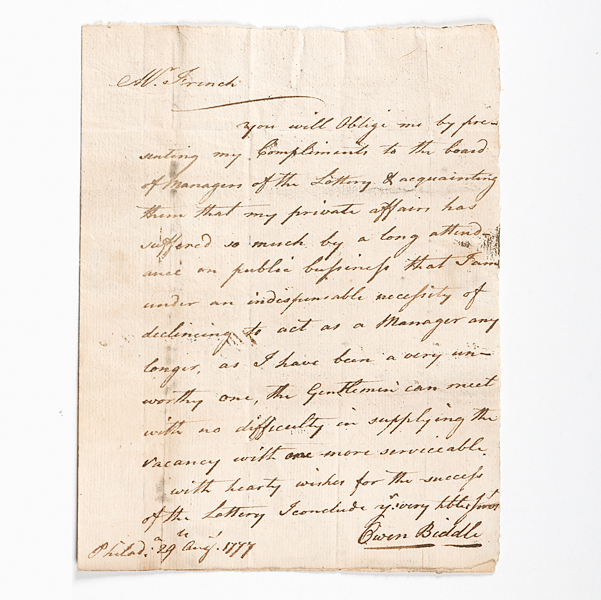 Mr. French
you will Oblige me by pre-
senting my Compliments to the board
of Managers of the Lottery & acquainting
them that my private affairs has
suffered so much by a long attend-
ance on public bussiness that I am
under an indespensable necessity of
declineing to act as a Manager any
longer, as I have been a very un-
worthy one, the Gentlemen can meet
with no difficulty in supplying the
vacancy with one more serviceable,
with hearty wishes for the success
of the Lottery I conclude yr. very hble Servt
Owen Biddle
Philada. 29th Augt. 1777